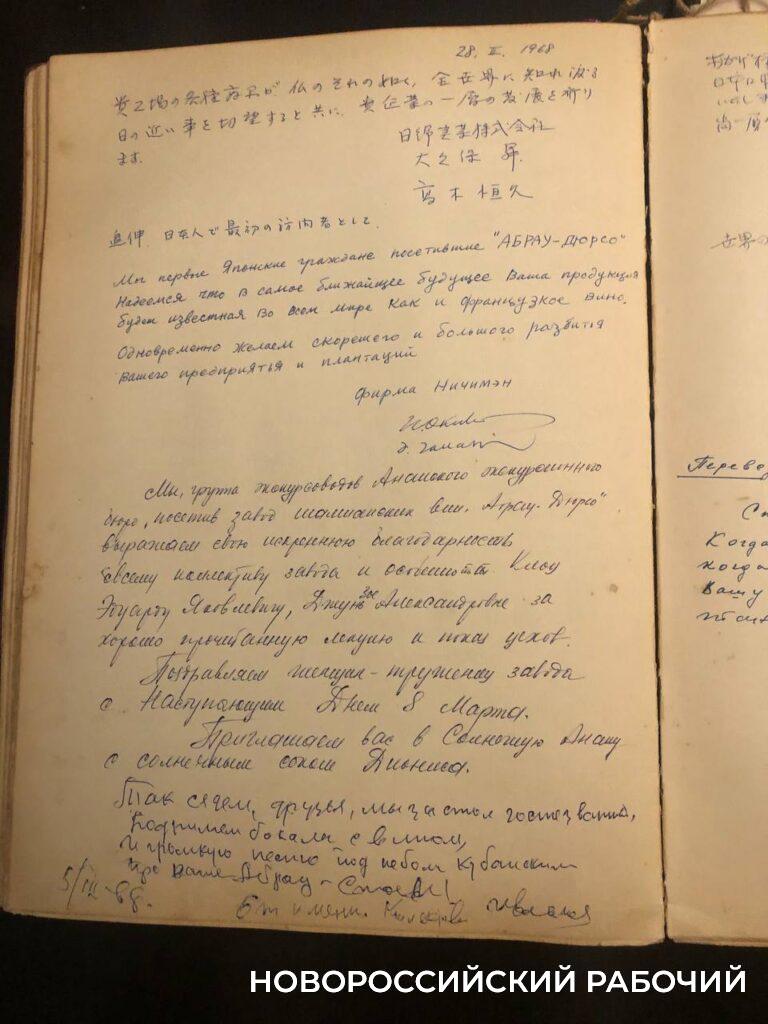 28. II. 1968
貴工場の生産商品が仏のそれの如く、全世界に知れ渡る
日の近い事を切望すると共に、貴企業の一層の発展を祈り
ます。
日綿実業株式会社
大久保 昇
高木 恒久
追伸 日本人で最初の訪問者として、
Мы первые Японские граждане посетившие "АБРАУ-ДЮРСО"
Надеемся что в самое ближайщее будущее Ваша продукция
будет известная во всем мире как и французкое вино.
Одновременно желаем скорешего и большого развития
вашего предприятья и плантаций
Фирма Ничимэн
Мы, группа экскурсоводов Анапского экскурсионного
бюро, посетив завод шампанских вин "Абрау-Дюрсо"
выражаем свою искреннюю благодарность
всему коллективу завода и особенно
Эдуарду Яковлевичу, Александровне за
хорошо прочитанную лекцию и показ цехов.
Поздравляем женщин-тружениц завода
с Наступающим Днем 8 Марта.
Приглашаем вас в Солнечную Анапу
с солнечным соком Диониса.
Так сядем, друзья, мы за стол
Поднимем бокалы с вином,
И громкую песню под небом Кубанским
Про ваше Абрау - Споем!
5/III-68.
От имени.
Перевод
Когда
когда
Вашу
НОВОРОССИЙСКИЙ РАБОЧИЙ